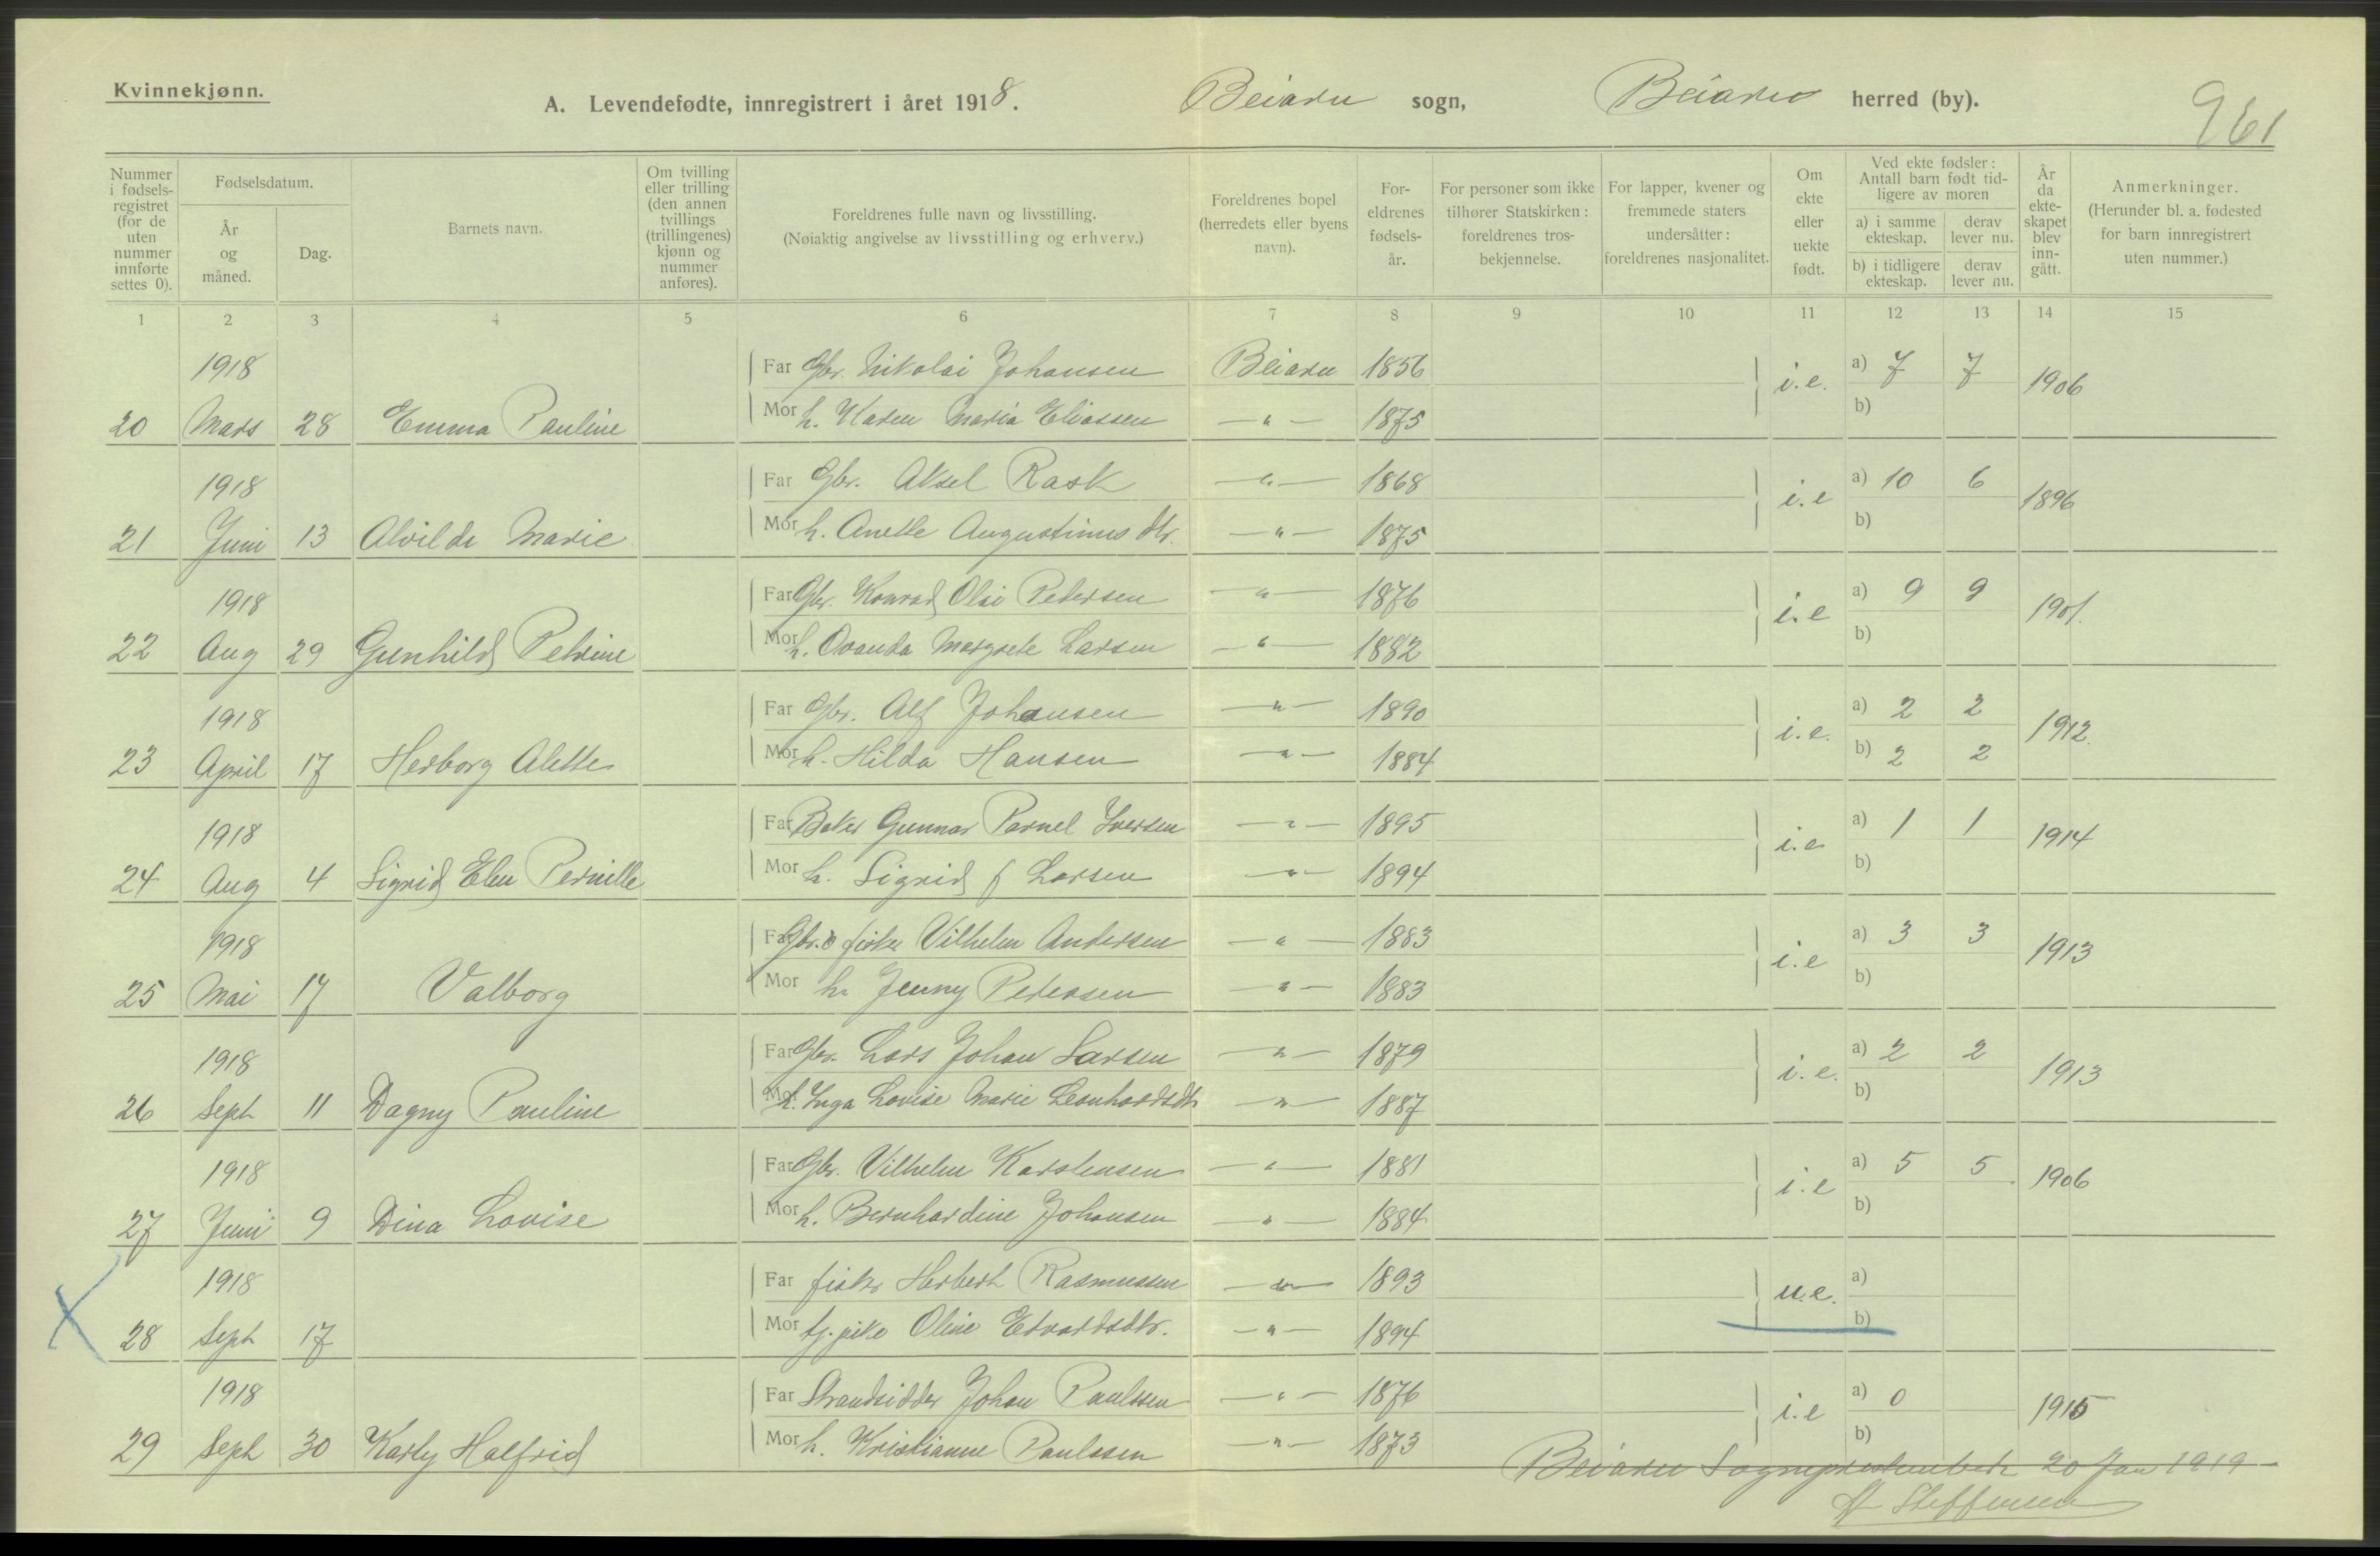 Kvinnekjønn.
A. Levendefødte, innregistrert i året 1918. Beiarn sogn, Beiarn herred (by).
961
Nummer i fødsels-registret (for de uten nummer innførte settes 0).
Fødselsdatum.
År og måned.
Dag.
Barnets navn.
Om tvilling eller trilling (den annen tvillings (trillingenes) kjønn og nummer anføres).
Foreldrenes fulle navn og livsstilling.
(Nøiaktig angivelse av livsstilling og erhverv.)
Foreldrenes bopel (herredets eller byens navn).
For-eldrenes fødsels-år.
For personer som ikke tilhører Statskirken: foreldrenes tros-bekjennelse.
For lapper, kvener og fremmede staters undersåtter: foreldrenes nasjonalitet.
Om ekte eller uekte født.
Ved ekte fødsler: Antall barn født tid-ligere av moren
a) i samme ekteskap. derav lever nu.
b) i tidligere ekteskap. derav lever nu.
År da ekte-skapet blev inn-gått.
Anmerkninger.
(Herunder bl. a. fødested for barn innregistrert uten nummer.)
1 2 3 4 5 6 7 8 9 10 11 12 13 14 15
1918 Far Gbr. Nikolai Johansen Beiarn 1856 i.e. a) 7 7 1906
20 Mars 28 Emma Pauline Mor h. Karen Maria Eliassen —"— 1875 b)
1918 Far Gbr. Aksel Rask —"— 1868 i.e a) 10 6 1896
21 Juni 13 Alvilda Marie Mor h. Anette Augustinusdtr. —"— 1875 b)
1918 Far Gbr. Konrad Olai Petersen —"— 1876 i.e a) 9 9 1901.
22 Aug 29 Gunhild Petrine Mor h. Ovanda Margrete Larsen —"— 1882 b)
1918 Far Gbr. Alf Johansen —"— 1890 i.e. a) 2 2 1912.
23 April 17 Herborg Alette Mor h. Hilda Hansen —"— 1884 b) 2 2
1918 Far Baker Gunnar Parnel Iversen —"— 1895 i.e a) 1 1 1914
24 Aug 4 Sigrid Elen Pernille Mor h. Sigrid f Larsen —"— 1894 b)
1918 Far Gbr. o fisker Vilhelm Andersen —"— 1883 i.e a) 3 3 1913
25 Mai 17 Valborg Mor h. Jenny Petersen —"— 1883 b)
1918 Far Gbr. Lars Johan Larsen —"— 1879 i.e. a) 2 2 1913
26 Sept 11 Dagny Pauline Mor h. Inga Lovise Marie Leonhardsdtr —"— 1887 b)
1918 Far Gbr. Vilhelm Karstensen —"— 1881 i.e a) 5 5 1906
27 Juni 9 Dina Lovise Mor h. Bernhardine Johansen —"— 1884 b)
1918 Far fisker Herbert Rasmussen —"— 1893 u.e. a)
28 Sept 17 Mor tj. pike Oline Edvardsdtr. —"— 1894 b)
1918 Far Strandsidder Johan Paulssen —"— 1876 i.e a) 0 1915
29 Sept 30 Karly Halfrid Mor h. Kristianne Paulssen —"— 1873 b)
Beiarn Sogneprestembede 20 Jan 1919
Steffensen